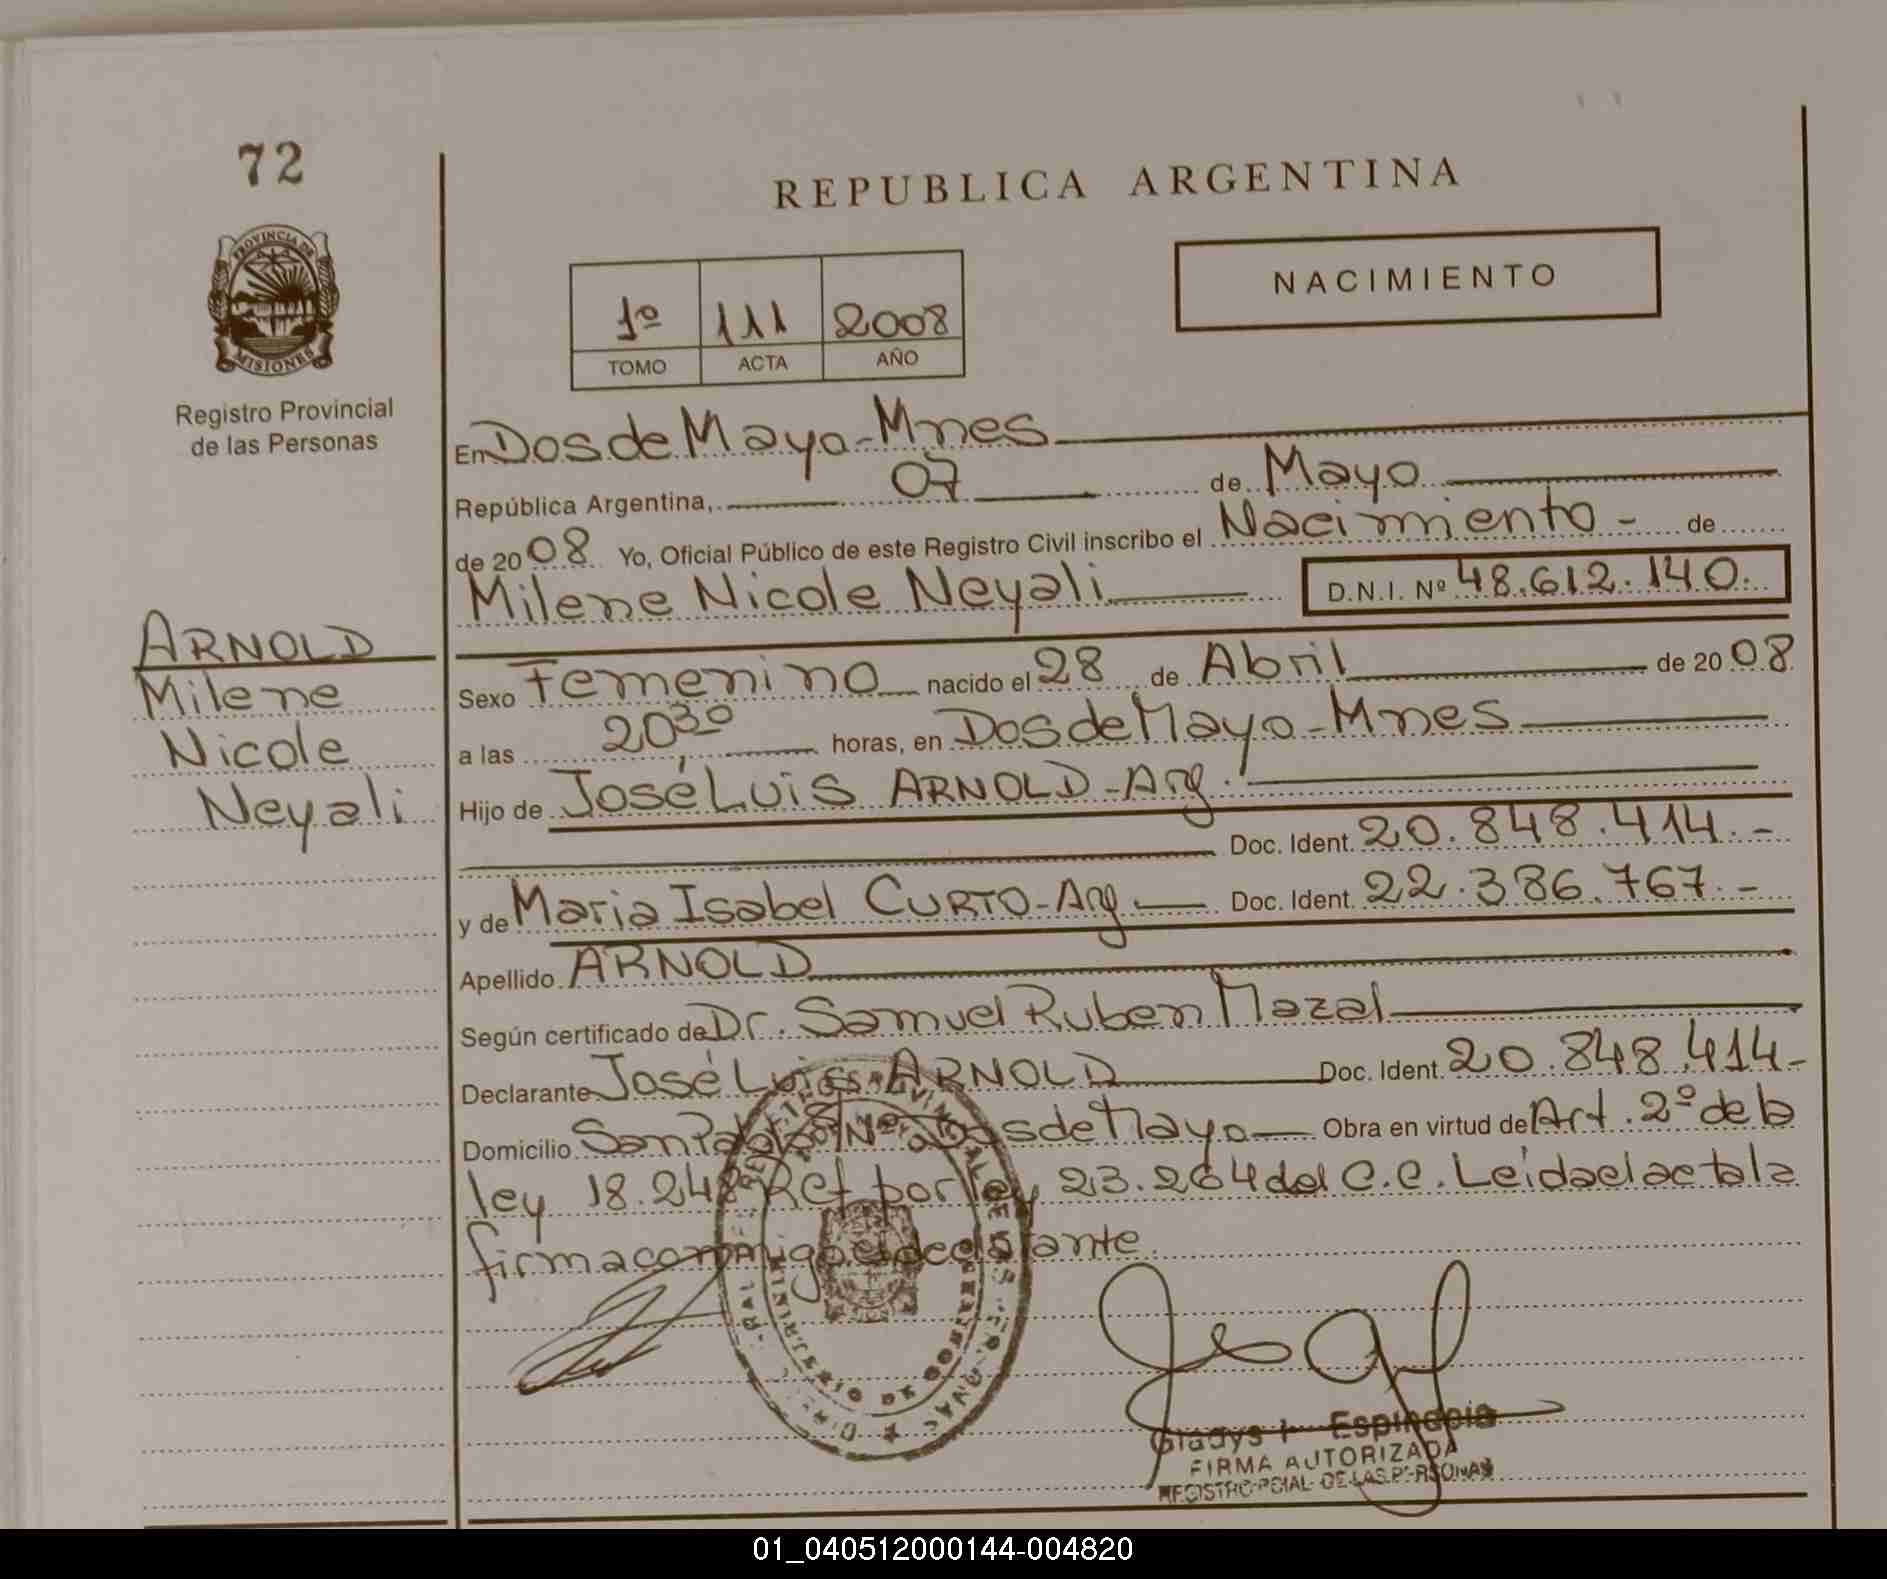 72
PROVINCIA DE
MISIONES
Registro Provincial
de las Personas
REPUBLICA ARGENTINA
NACIMIENTO
1º 111 2008
TOMO ACTA AÑO
En Dos de Mayo - Mnes
República Argentina, 07 de Mayo
de 2008 Yo, Oficial Público de este Registro Civil inscribo el Nacimiento - de
Milene Nicole Neyali D.N.I. Nº 48.612.140.
ARNOLD
Milene
Nicole
Neyali
Sexo Femenino nacido el 28 de Abril de 2008
a las 20,30 horas, en Dos de Mayo - Mnes
Hijo de José Luis ARNOLD - Arg.
Doc. Ident. 20.848.414.-
y de Maria Isabel CURTO - Arg Doc. Ident. 22.386.767.-
Apellido ARNOLD
Según certificado de Dr. Samuel Ruben Mazal
Declarante José Luis ARNOLD Doc. Ident. 20.848.414-
Domicilio San Pablo Nº Dos de Mayo Obra en virtud de Art. 2º de la
ley 18.248 Ref por ley 23.264 del C.C. Leida el acta la
firma conmigo el declarante
Gladys I Espindola
FIRMA AUTORIZADA
REGISTRO PCIAL. DE LAS PERSONAS
01_040512000144-004820